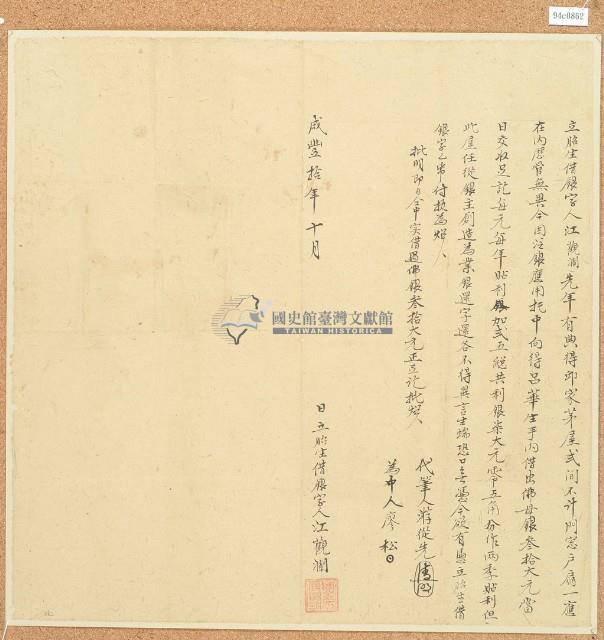 94c0862
立胎生借銀字人江觀瀾先年有典得邱家茅屋弍間不計門窓戶扇一應
在內歷管無異今因乏銀應用托中向得呂華生手內借出佛母銀叁拾大元當
日交收足訖每元每年貼利銀加弍五聰共利銀柒大元零五角分作兩季貼利但
此屋任從銀主創造為業銀還字還各不得異言生端恐口無憑今欲有憑立胎生借
銀字乙帋付执為炤
批明即日仝中实借過佛銀叁拾大元正立訖批炤
代筆人蔣從先
為中人廖松
咸豐拾年十月
日立胎生借銀字人江觀瀾
國史館臺灣文獻館
TAIWAN HISTORICA